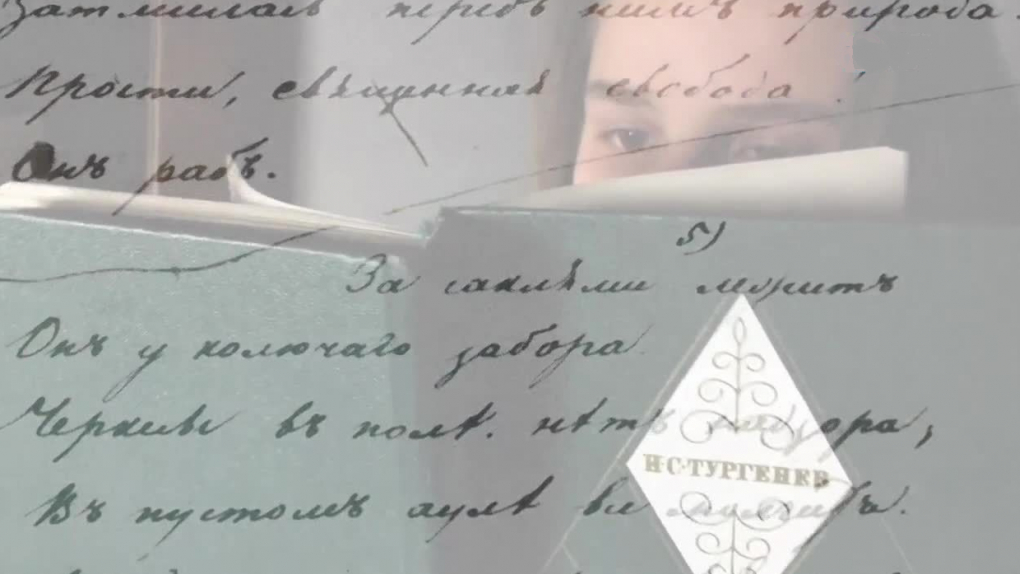 Затмилась передъ нимъ природа.
Прости, священная свобода!
Онъ рабъ.
5)
За саклями лежитъ
Онъ у колючаго забора.
Черкесы въ полѣ. нѣтъ надзора,
И·С·ТУРГЕНЕВ
Въ пустомъ аулѣ все молчитъ.